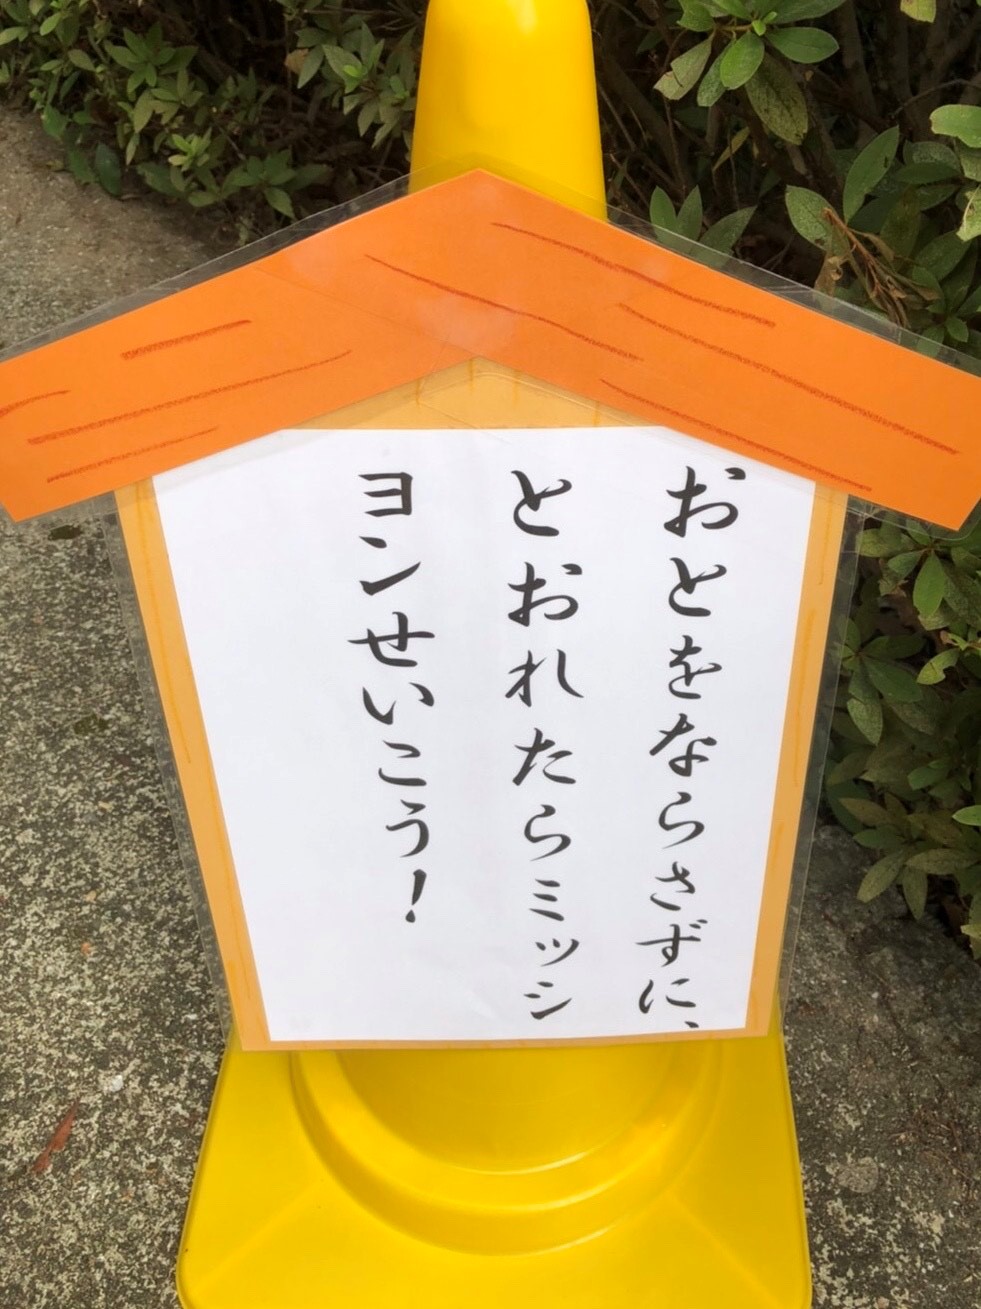 おとをならさずに、
とおれたらミッシ
ヨンせいこう!